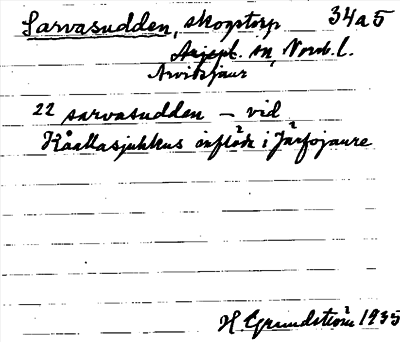 Sarvasudden, skogstorp 34a5
Arjepl. sn, Norrb. l.
Arvidsjaur
22 sarvasudden – vid
Kåallasjukkus inflöde i Järfojaure
H. Grundström 1935